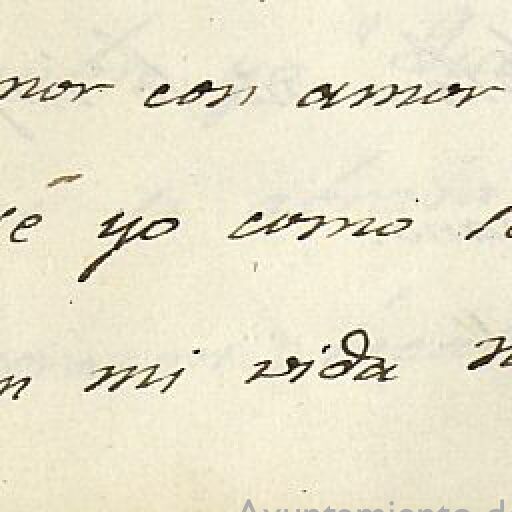 mor con amor
é yo como
n mi vida
Ayuntamiento d